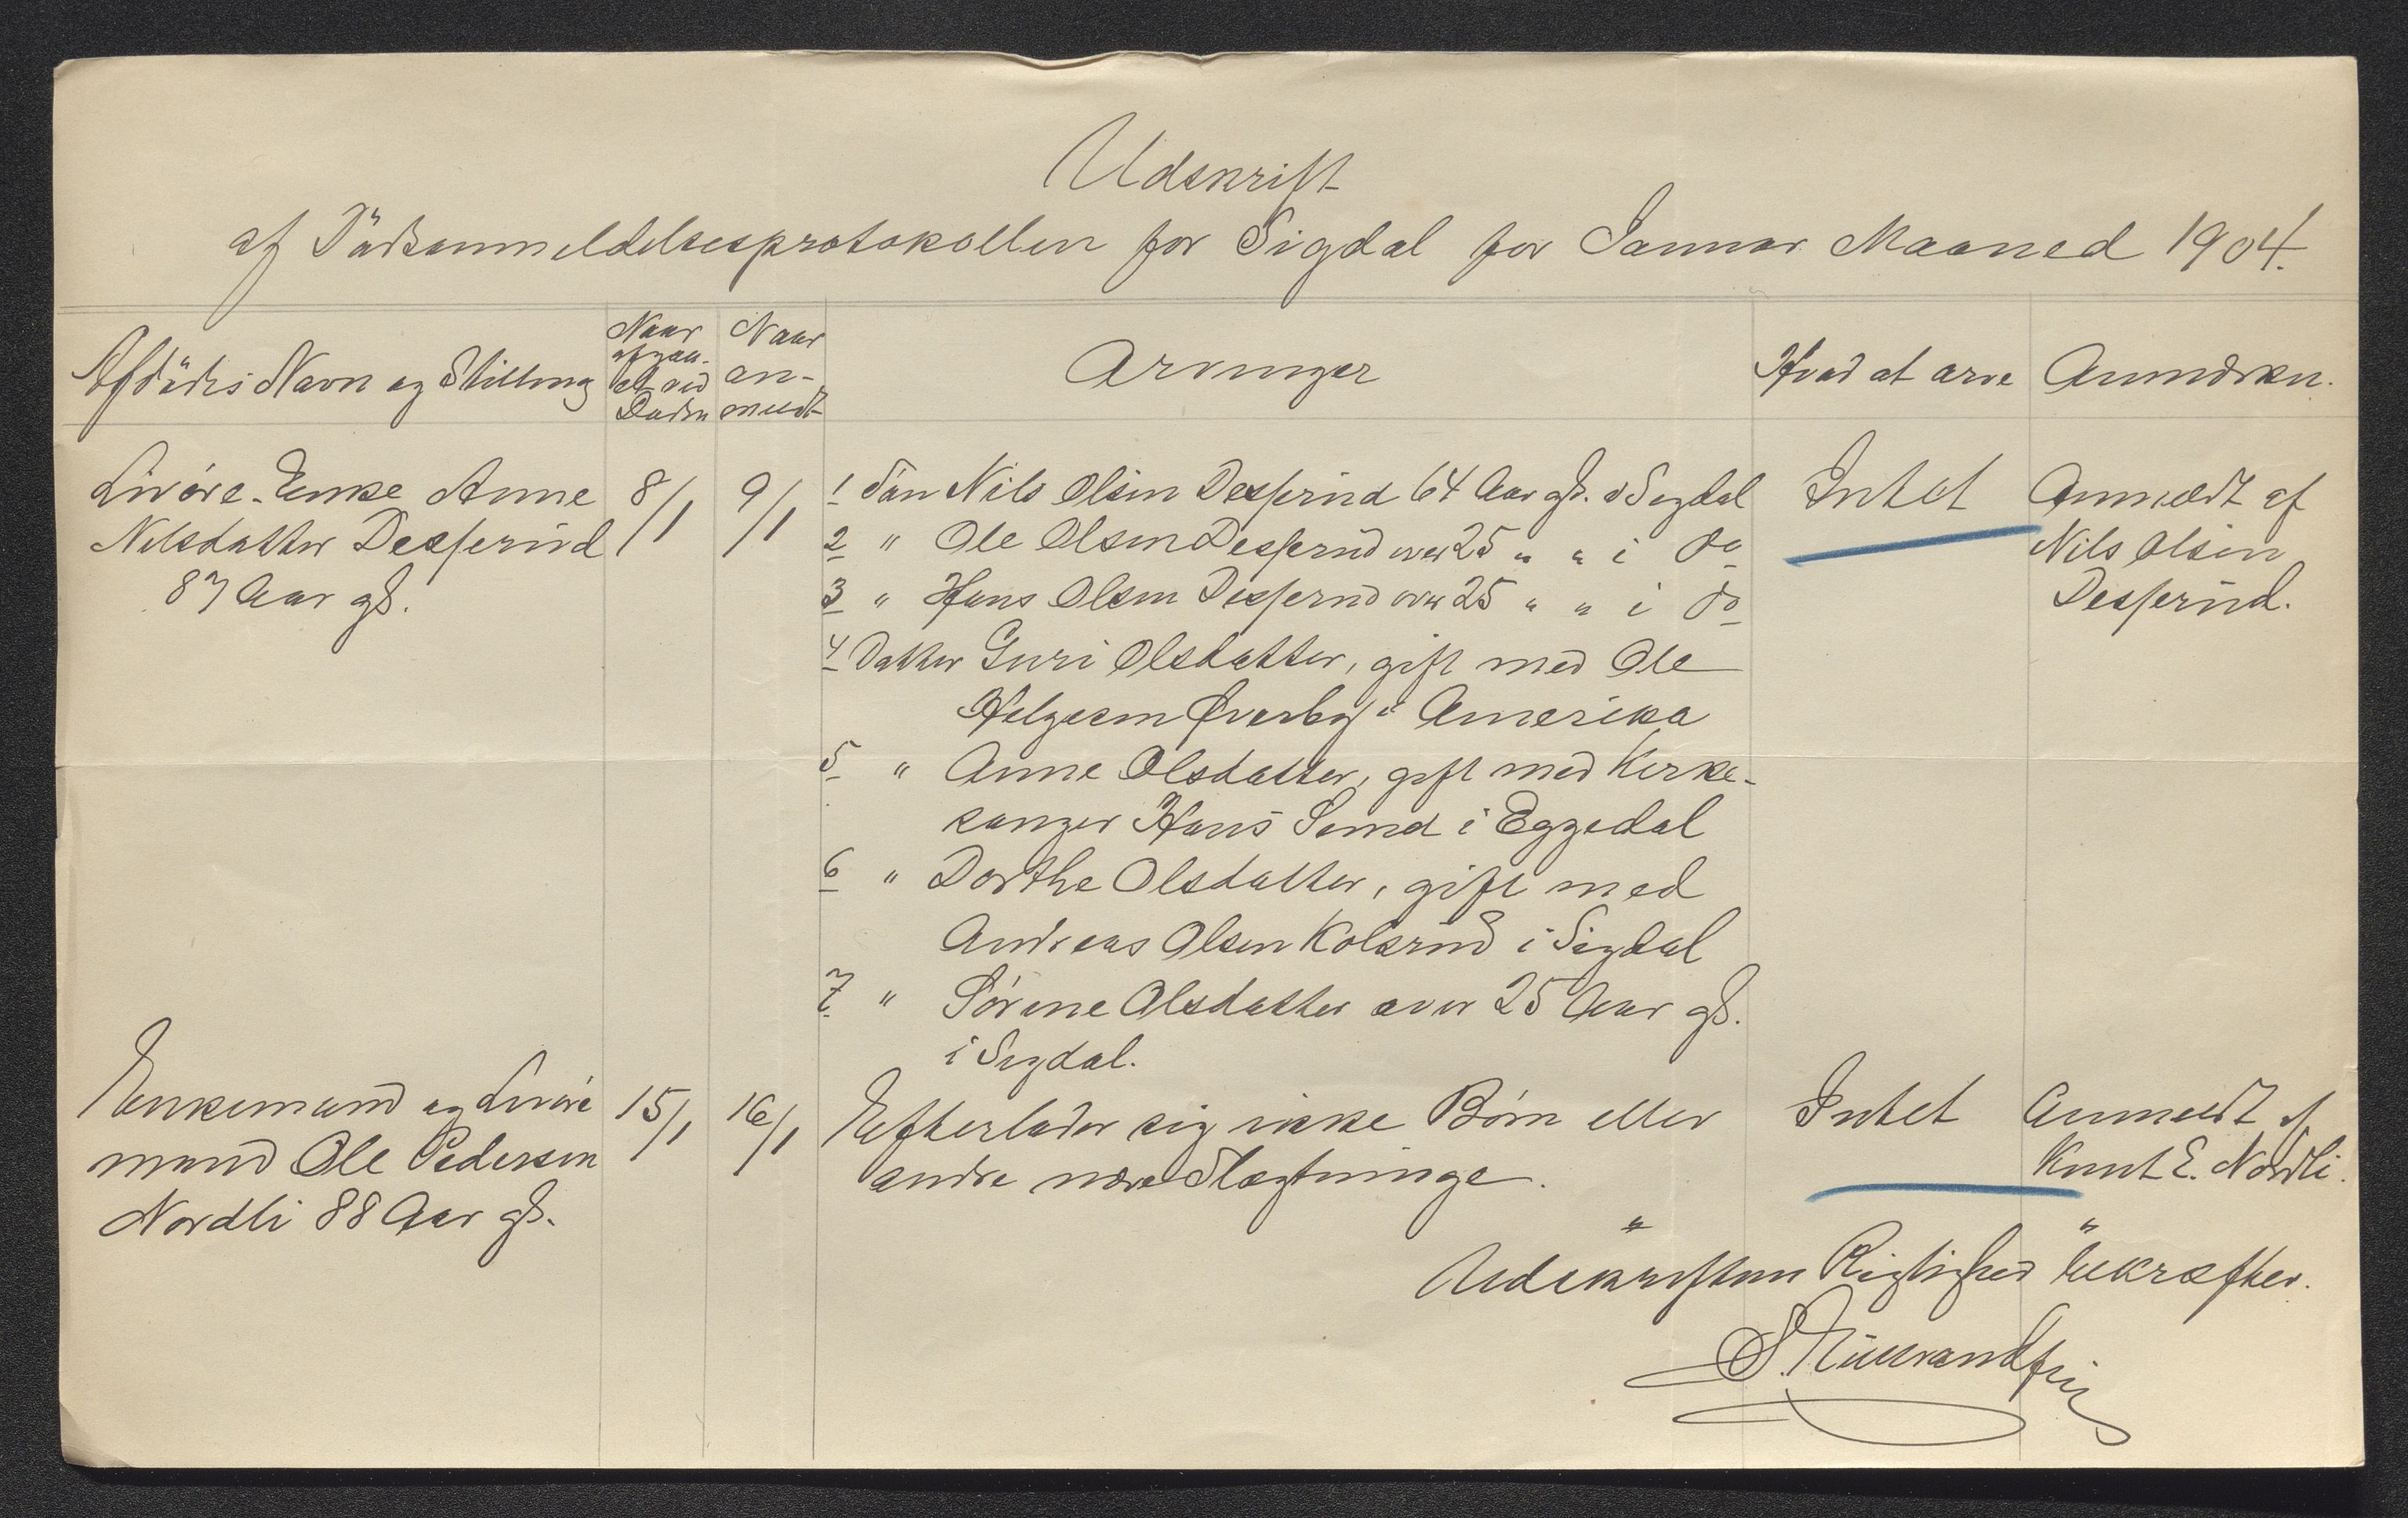 Udskrift
af Dødsanmeldelsesprotokollen for Sigdal for Januar Maaned 1904.
Afdødes Navn og Stilling
Naar
afgaa-
et ved
Døden
Naar
an-
meldt
Arvinger
Hvad at arve
Anmærkn.
Livøre-Enke Anne
Nilsdatter Desserud
87 Aar gl.
8/1
9/1
1 Søn Nils Olsen Desserud 64 Aar gl. i Sigdal
2 " Ole Olsen Desserud over 25 " " i do
3 " Hans Olsen Desserud over 25 " " i do
4 Datter Guri Olsdatter, gift med Ole
Helgesen Øverby i Amerika
5 " Anne Olsdatter, gift med Kirke-
sanger Hans i Eggedal
6 " Dorthe Olsdatter, gift med
Andreas Olsen Kolsrud i Sigdal
7 " Sørine Olsdatter over 25 Aar gl.
i Sigdal.
Intet
Anmeldt af
Nils Olsen
Desserud.
Enkemand og Livøre
mand Ole Pedersen
Nordli 88 Aar gl.
15/1
16/1
Efterlader sig ikke Børn eller
andre nære Slægtninge.
Intet
Anmeldt af
Knut E. Nordli.
" "
Udskriftens Rigtighed bekræfter.